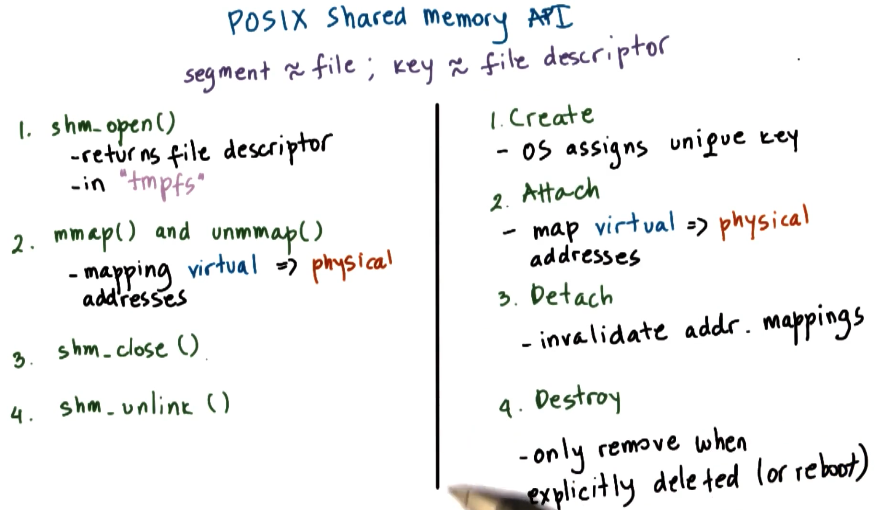 POSIX Shared Memory API
segment ≈ file; key ≈ file descriptor
1. shm_open()
-returns file descriptor
-in "tmpfs"
2. mmap() and unmmap()
-mapping virtual => physical
addresses
3. shm_close()
4. shm_unlink ()
1. Create
- OS assigns unique key
2. Attach
- map virtual => physical
addresses
3. Detach
- invalidate addr. mappings
4. Destroy
-only remove when
explicitly deleted (or reboot)